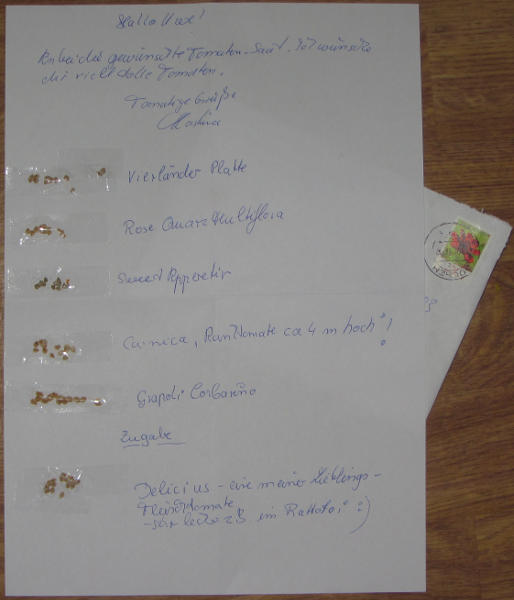 Hallo
Anbei das gewünschte Tomaten-Saat. Ich wünsche
dir viele tolle Tomaten.
Tomatige Grüße
Vierländer Platte
Rose Quarz Multiflora
Sweet
Carnica, Ranktomate ca 4 m hoch!
Grapoli Corbarino
Zugabe
Delicius - eine meiner Lieblings-
Fleischtomate
- sehr lecker z.B im :)